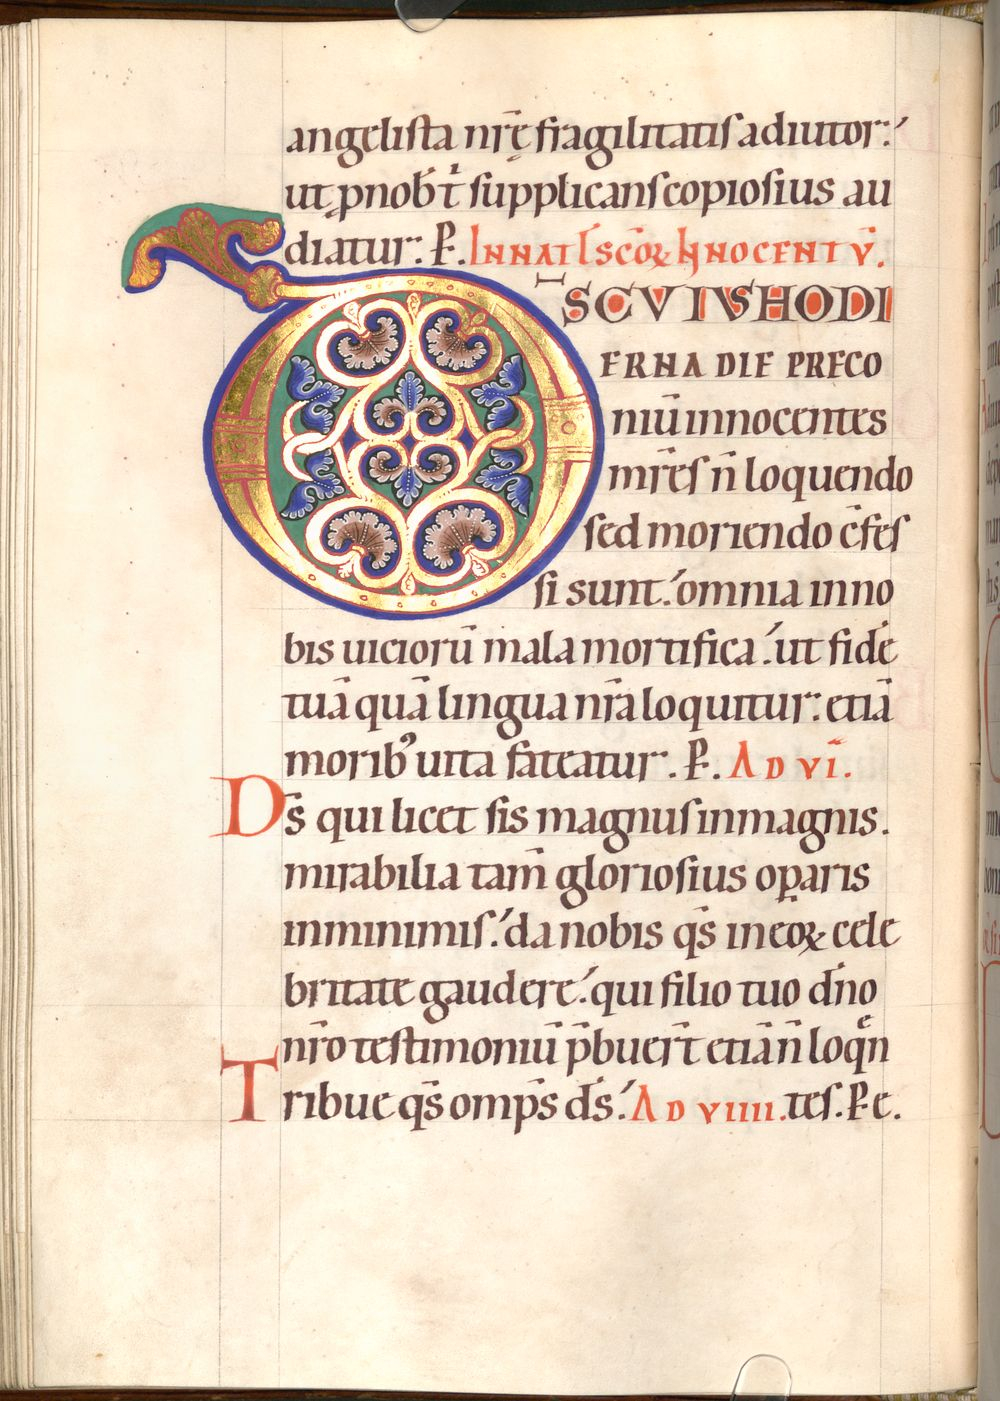 angelista nr̄ę fragilitatis adiutor:
ut p nob̄ t̄ supplicans copiosius au
diatur: P. IN NAT̄ SC̄OꝜ INNOCENTV̄.
D̄S CVIVS HODI
ERNA DIE PRECO
niū innocentes
mr̄es n̄ loquendo
sed moriendo c̄fes
si sunt. omnia in no
bis uiciorū mala mortifica. ut fidē
tuā quā lingua nr̄a loquitur: etiā
moribꝰ uita fateatur. P. AD VI.
Ds̄ qui licet sis magnus in magnis.
mirabilia tam̄ gloriosius oꝑaris
in minimis. da nobis qs̄ in eoꝝ cele
britate gaudere. qui filio tuo dn̄o
nr̄o testimoniū p̄buer̄t etiā n̄ loqn̄
Tribue qs̄ omps̄ ds̄. AD VIIII. tes. P. e.